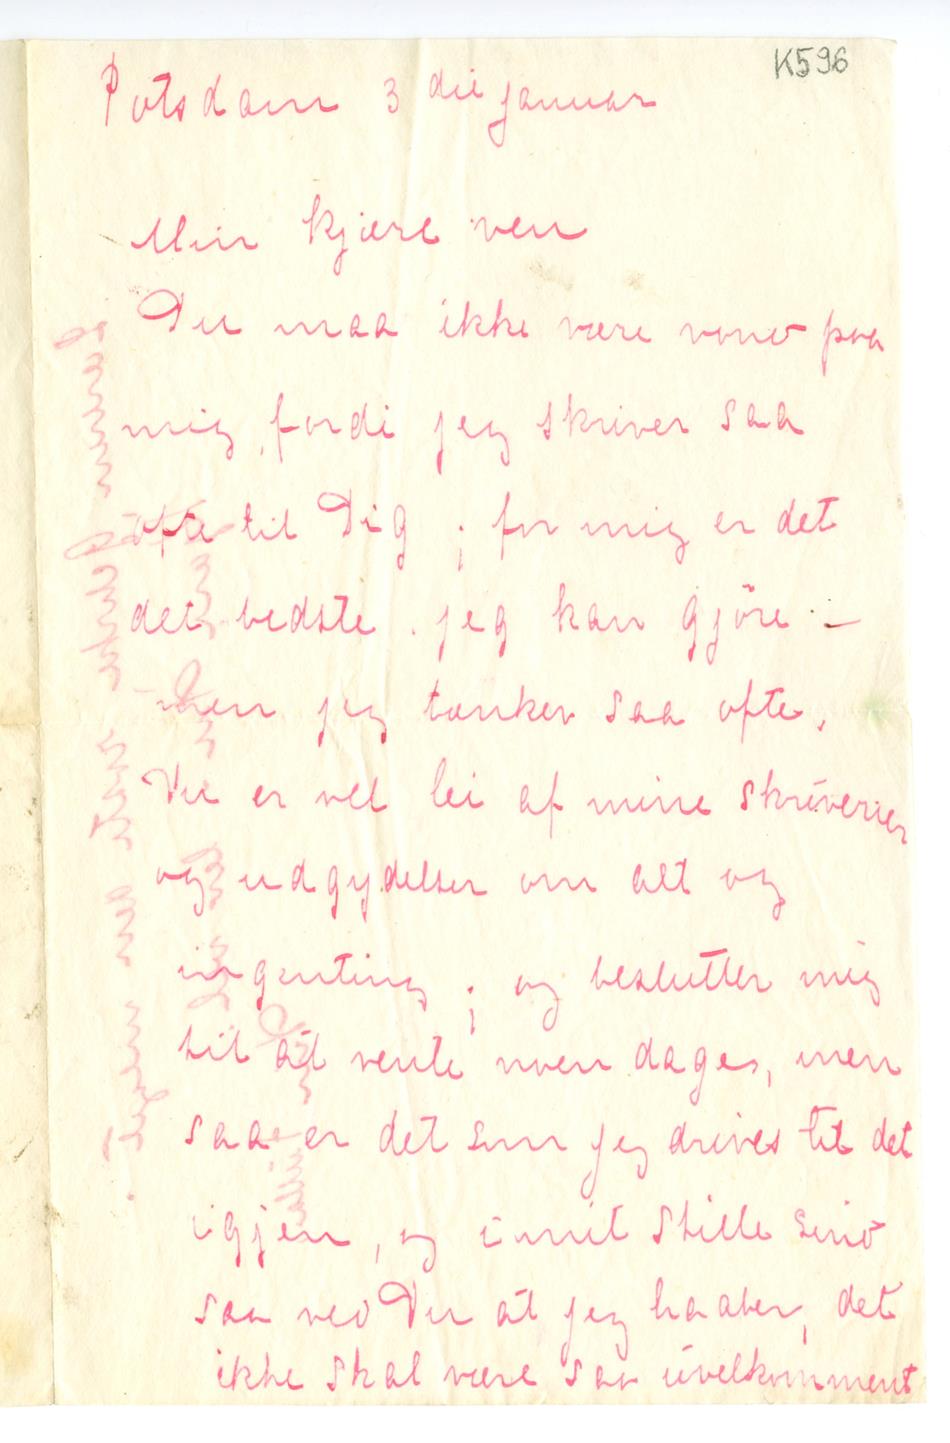 K596
Potsdam 3die januar
Min kjære ven
Du maa ikke være vond paa
mig, fordi jeg skriver saa
ofte til Dig; for mig er det
det bedste jeg kan gjöre –
men jeg tænker saa ofte,
Du er vel lei af mine skriverier
og udgydelser om alt og
ingenting; og beslutter mig
til at vente noen dager, men
saa er det som jeg drives til det
igjen, og i mit stille sind
saa ved Du at jeg haaber, det
ikke skal være saa uvelkomment